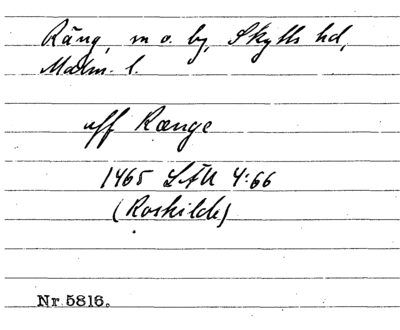 Räng, sn o. by, Skytts hd,
Malm. l.
uff Rænge
1465 LÄU 4:66
(Roskilde)
Nr 5816.